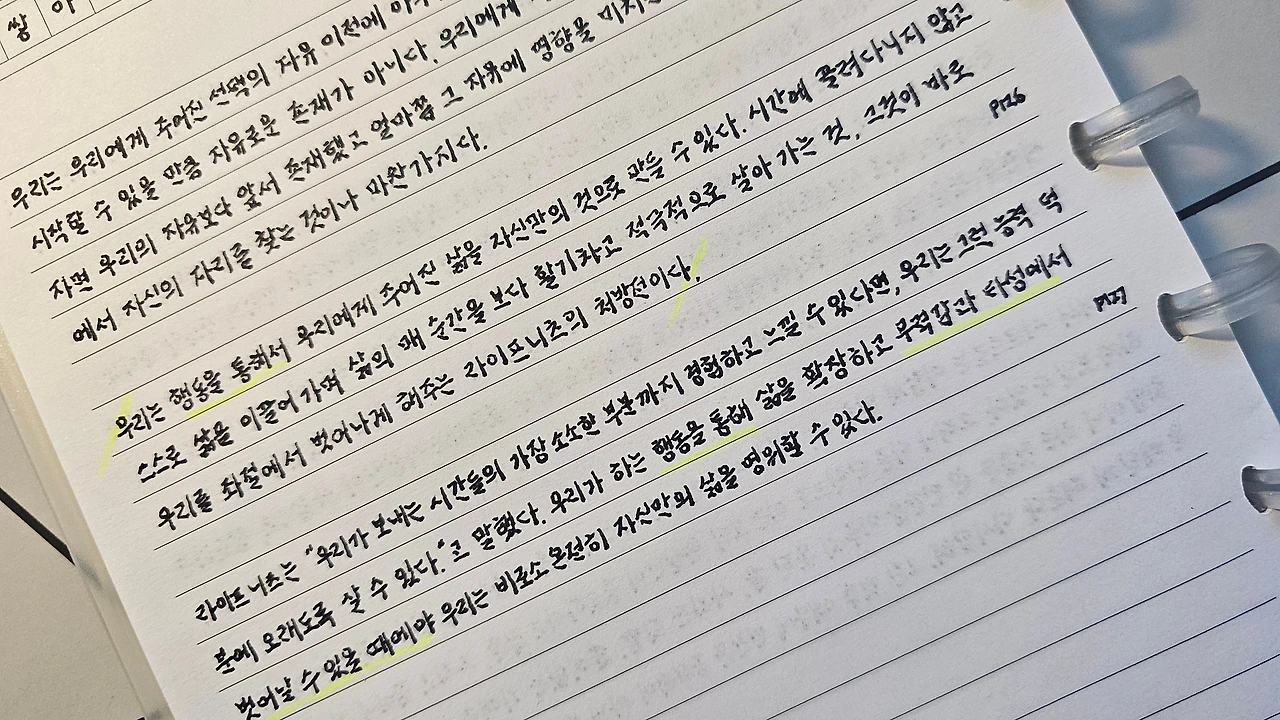 쌍 아
우리는 우리에게 주어진 선택의 자유 이전에
시작할 수 있을 만큼 자유로운 존재가 아니다. 우리에게
자면 우리의 자유보다 앞서 존재했고 얼마쯤 그 자유에 영향을
에서 자신의 자리를 찾는 것이나 마찬가지다.
우리는 행동을 통해서 우리에게 주어진 삶을 자신만의 것으로 만들 수 있다. 시간에 끌려다니지 않고
스스로 삶을 이끌어 가며 삶의 매 순간을 보다 활기차고 적극적으로 살아 가는 것, 그것이 바로
우리를 좌절에서 벗어나게 해주는 라이프니츠의 처방전이다.
P.126
라이프니츠는 "우리가 보내는 시간들의 가장 소소한 부분까지 경험하고 느낄 수 있다면, 우리는 그런 능력 덕
분에 오래도록 살 수 있다."고 말했다. 우리가 하는 행동을 통해 삶을 확장하고 무력감과 타성에서
벗어날 수 있을 때에야 우리는 비로소 온전히 자신만의 삶을 영위할 수 있다.
P.127